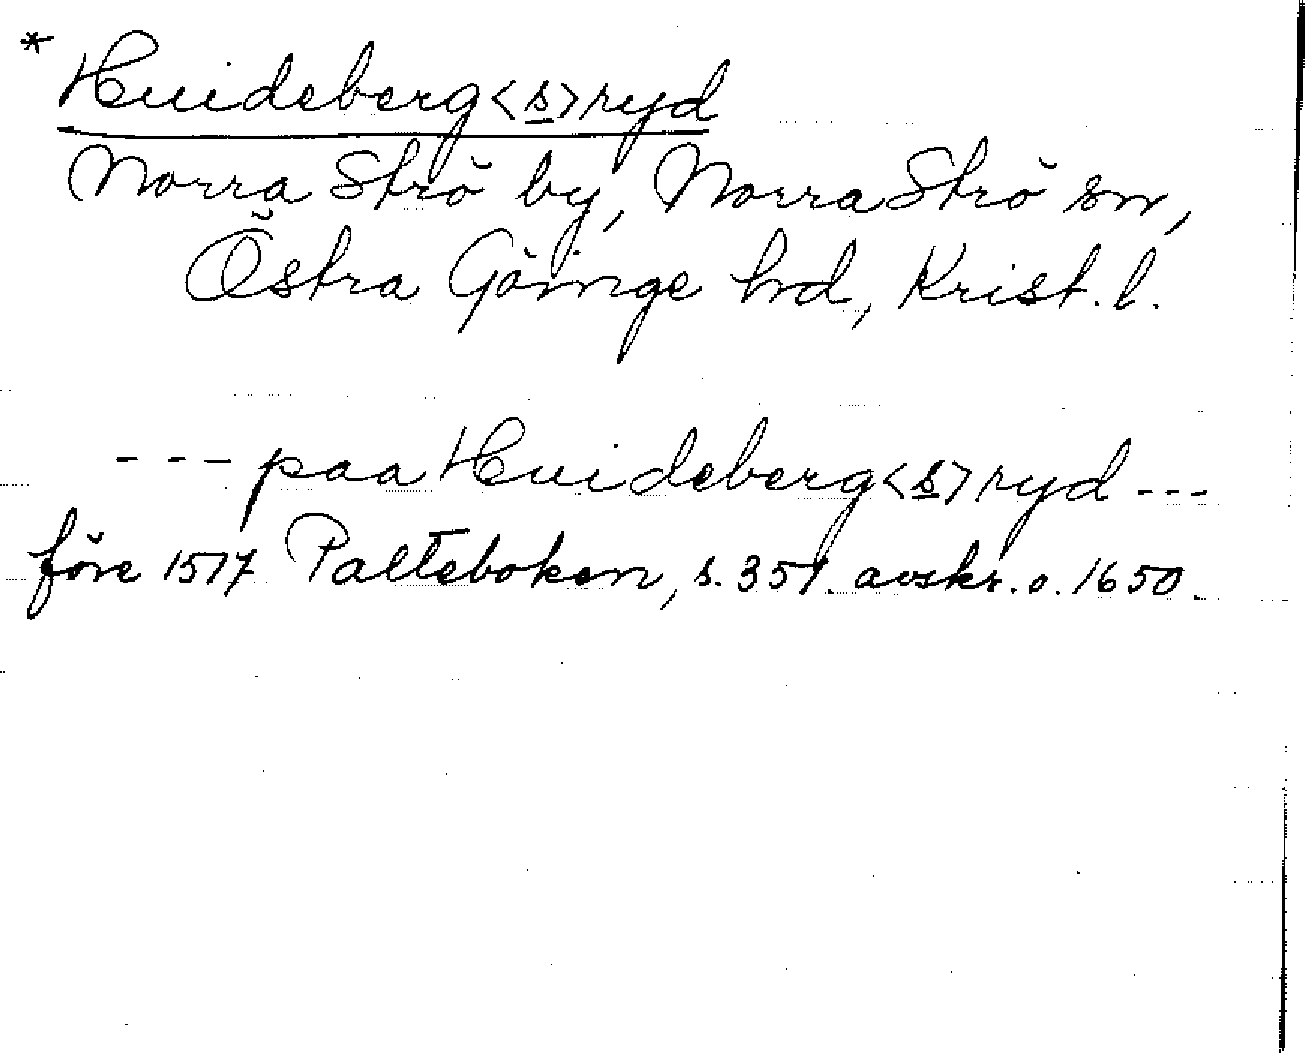 * Huideberg<s>ryd
Norra Strö by, Norra Strö sn,
Östra Göinge hd, Krist. l.
--- paa Huideberg<s>ryd ---
före 1517 Palteboken, s. 351. avskr. o. 1650.